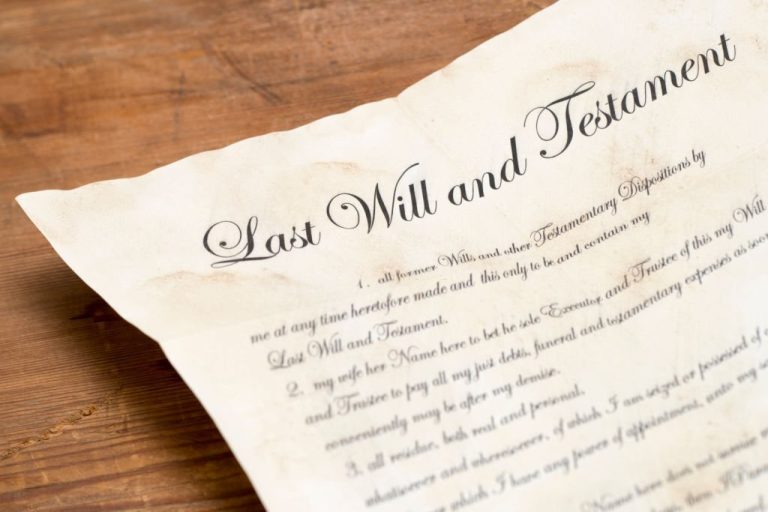 Last Will and Testament
1. all former Wills and other Testamentary Dispositions by
me at any time heretofore made and this only to be and contain my
Last Will and Testament.
2. my wife her Name here to bet he sole Executor and Trustee of this my Will
and Trustee to pay all my just debts, funeral and testamentary expenses as soon
conveniently may be after my demise.
3. all residue, both real and personal,
whatsoever and wheresoever, of which I am seized or possessed of
over which I have any power of appointment, unto my
Name here does not survive